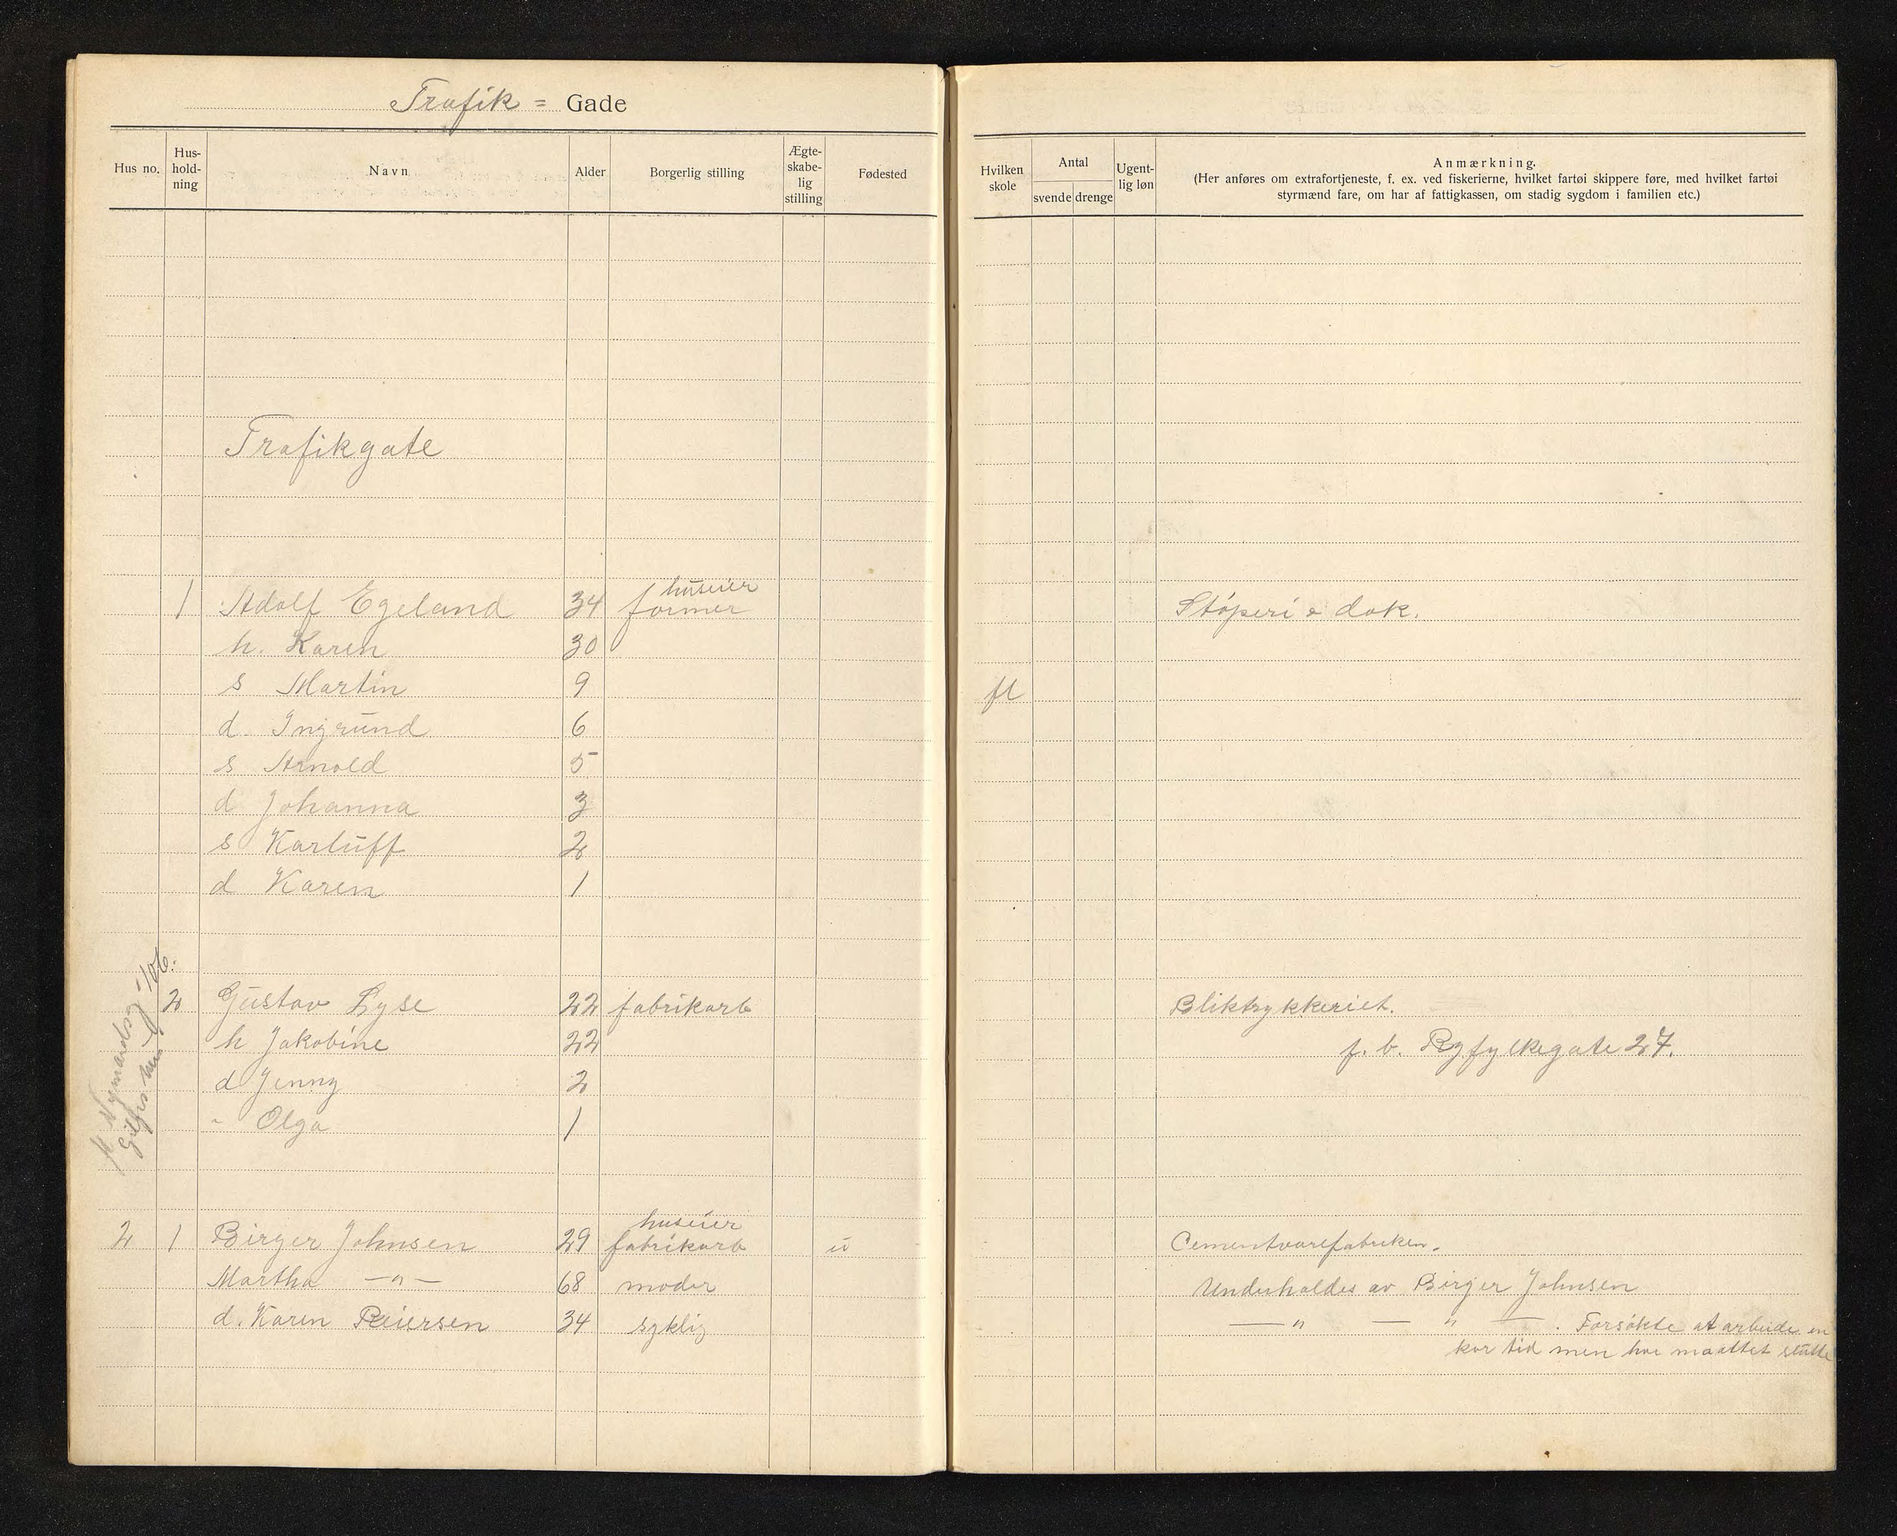 Trafik = Gade
Hus no. Hus-hold-ning Navn Alder Borgerlig stilling Ægte-skabe-lig stilling Fødested
Hvilken skole Antal svende drenge Ugent-lig løn Anmærkning.
(Her anføres om extrafortjeneste, f. ex. ved fiskerierne, hvilket fartøi skippere føre, med hvilket fartøi
styrmænd fare, om har af fattigkassen, om stadig sygdom i familien etc.)
Trafikgate
huseier
1 Adolf Egeland 34 former Støperi & dok.
h. Karen 30
s Martin 9 fl
d. Ingrund 6
s Arnold 5
d Johanna 3
s Karluff 2
d Karen 1
2 Gustav Lyse 22 fabrikarb Bliktrykkeriet.
h Jakobine 22 f. b. Ryfylkegate 27.
d Jenny 2
" Olga 1
huseier
2 1 Birger Johnsen 29 fabrikarb u Cementvarefabriken.
Martha —"— 68 moder Underholdes av Birger Johnsen
d. Karen Reiersen 34 syklig —"— " — . Forsøkte at arbeide en
kor tid men har maattet slutte